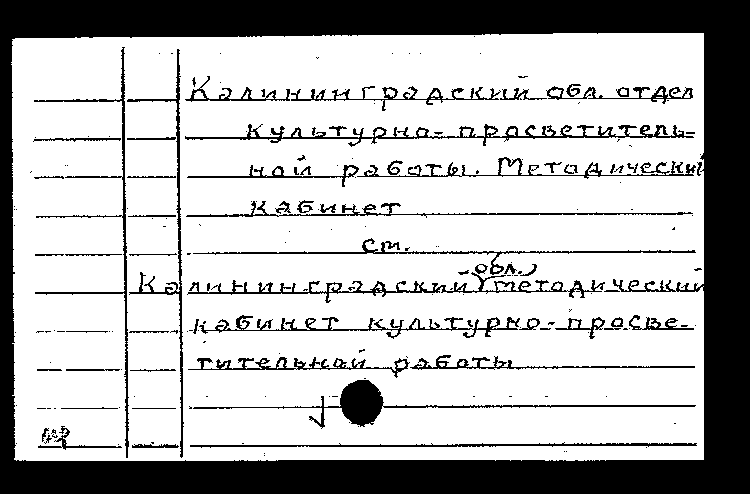 Калининградский обл. отдел
культурно-просветитель-
ной работы. Методический
кабинет
см.
обл.
Калининградский методический
кабинет культурно-просве-
тительной работы